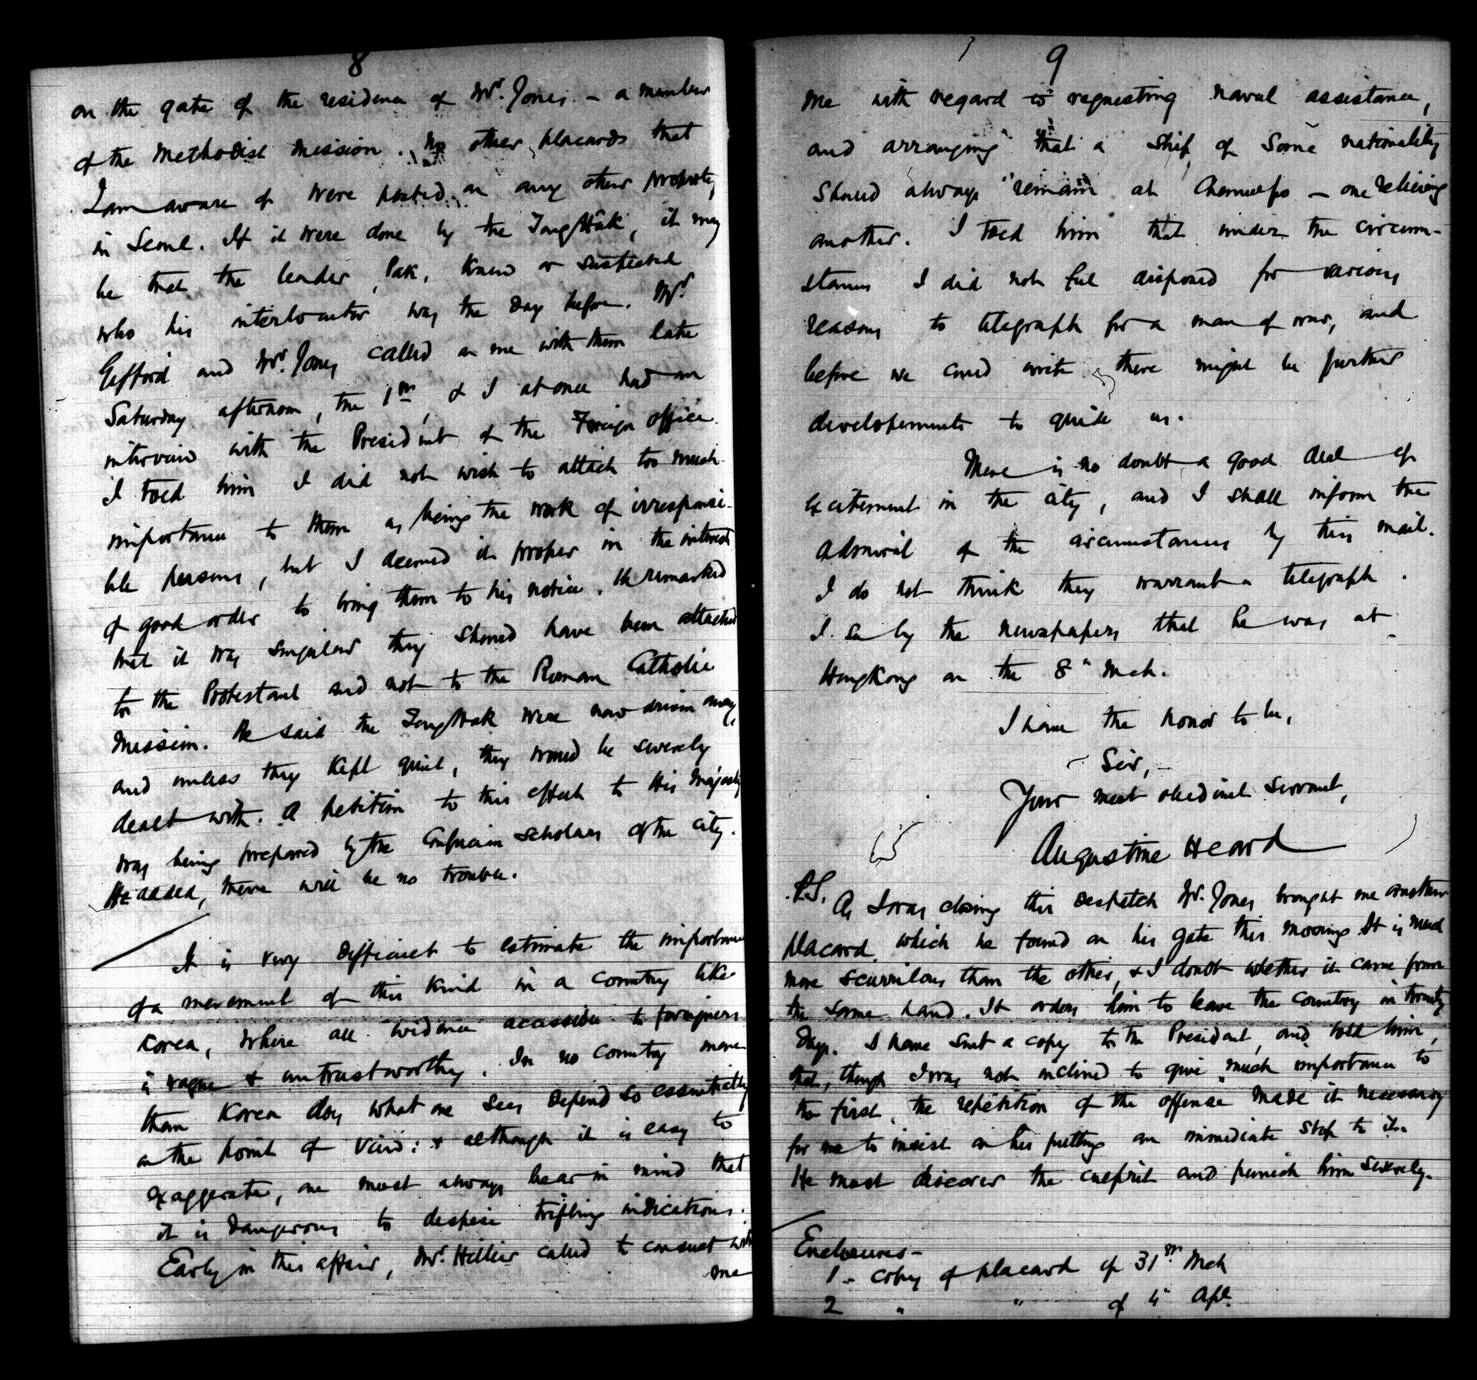 8
on the gate of the residence of Mr. Jones - a member
of the Methodist Mission. No other placards that
I am aware of were posted on any other property
in Seoul. If it were done by the Tong Hak, it may
be that the leader, Pak, knew or suspected
who his interlocutor was the day before. Mr.
Gifford and Mr. Jones called on me with them late
Saturday afternoon, the 1st, & I at once had an
interview with the President of the Foreign Office.
I told him I did not wish to attach too much
importance to them as being the work of irresponsi-
ble persons, but I deemed it proper in the interest
of good order to bring them to his notice. He remarked
that it was singular they should have been attached
to the Protestant and not to the Roman Catholic
Mission. He said the Tong Hak were now driven away,
and unless they kept quiet, they would be severely
dealt with. A petition to this effect to His Majesty
was being prepared by the Confucian scholars of the city.
He added, there will be no trouble.
It is very difficult to estimate the importance
of a movement of this kind in a country like
Korea, where all evidence accessible to foreigners
is vague & untrustworthy. In no country more
than Korea does what one sees depend so essentially
on the point of view: & although it is easy to
exaggerate, one must always bear in mind that
it is dangerous to despise trifling indications.
Early in this affair, Mr. Hillier called to consult with
me
9
me with regard to requesting naval assistance,
and arranging that a ship of some nationality
should always remain at Chemulpo - one relieving
another. I told him that under the circum-
stances I did not feel disposed for various
reasons to telegraph for a man of war, and
before we could write there might be further
developements to guide us.
There is no doubt a good deal of
excitement in the city, and I shall inform the
Admiral of the circumstances by this mail.
I do not think they warrant a telegraph.
I see by the newspapers that he was at
Hongkong on the 8" Mch.
I have the honor to be,
Sir,
Your most obedient servant,
Augustine Heard
P.S. As I was closing this despatch Mr. Jones brought me another
placard which he found on his gate this morning. It is much
more scurrilous than the other, & I doubt whether it came from
the same hand. It orders him to leave the country in twenty
days. I have sent a copy to the President, and told him,
that, though I was not inclined to give much importance to
the first, the repetition of the offense made it necessary
for me to insist on his putting an immediate stop to it.
He must discover the culprit and punish him severely.
Enclosures -
1 - copy of placard of 31st Mch
2 " " of 4" Apl.